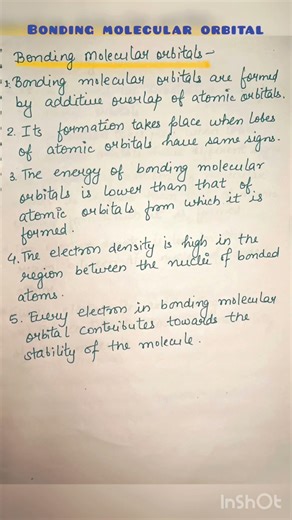 BONDING MOLECULAR ORBITAL
Bonding Molecular orbitals -
1. Bonding molecular orbitals are formed
by additive overlap of atomic orbitals.
2. Its formation takes place when lobes
of atomic orbitals have same signs.
3. The energy of bonding molecular
orbitals is lower than that of
atomic orbitals from which it is
formed.
4. The electron density is high in the
region between the nuclei of bonded
atoms.
5. Every electron in bonding molecular
orbital contributes towards the
stability of the molecule.
InShOt